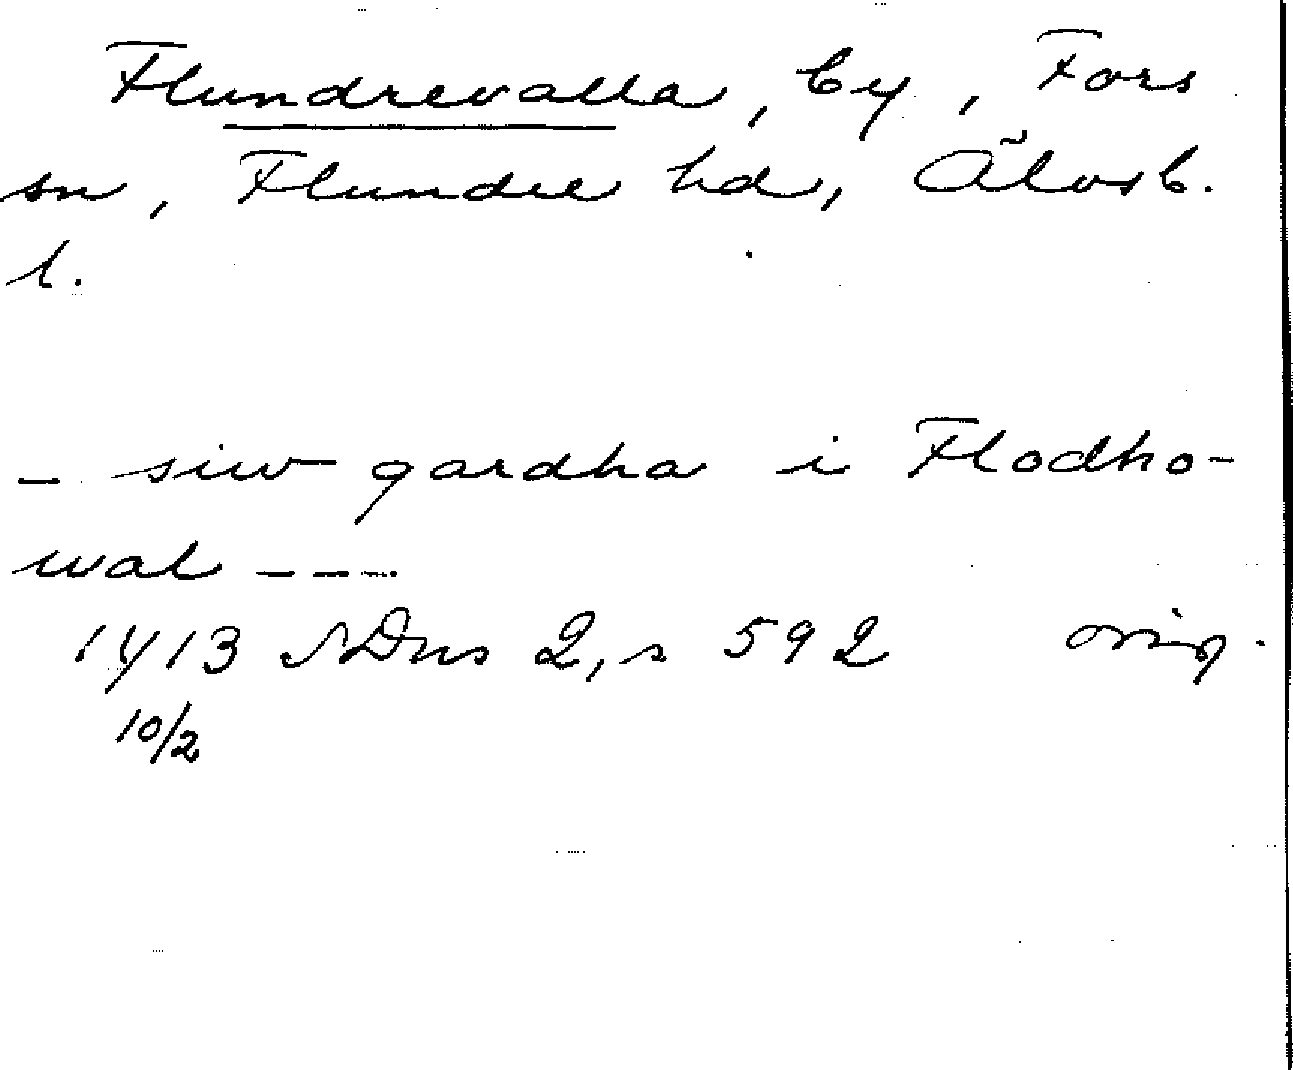 Flundrevalla, by, Fors
sn, Flundre hd, Älvsb.
l.
- siw gardha i Flodho-
wal ---
1413 SDns 2, s 592 orig.
10/2